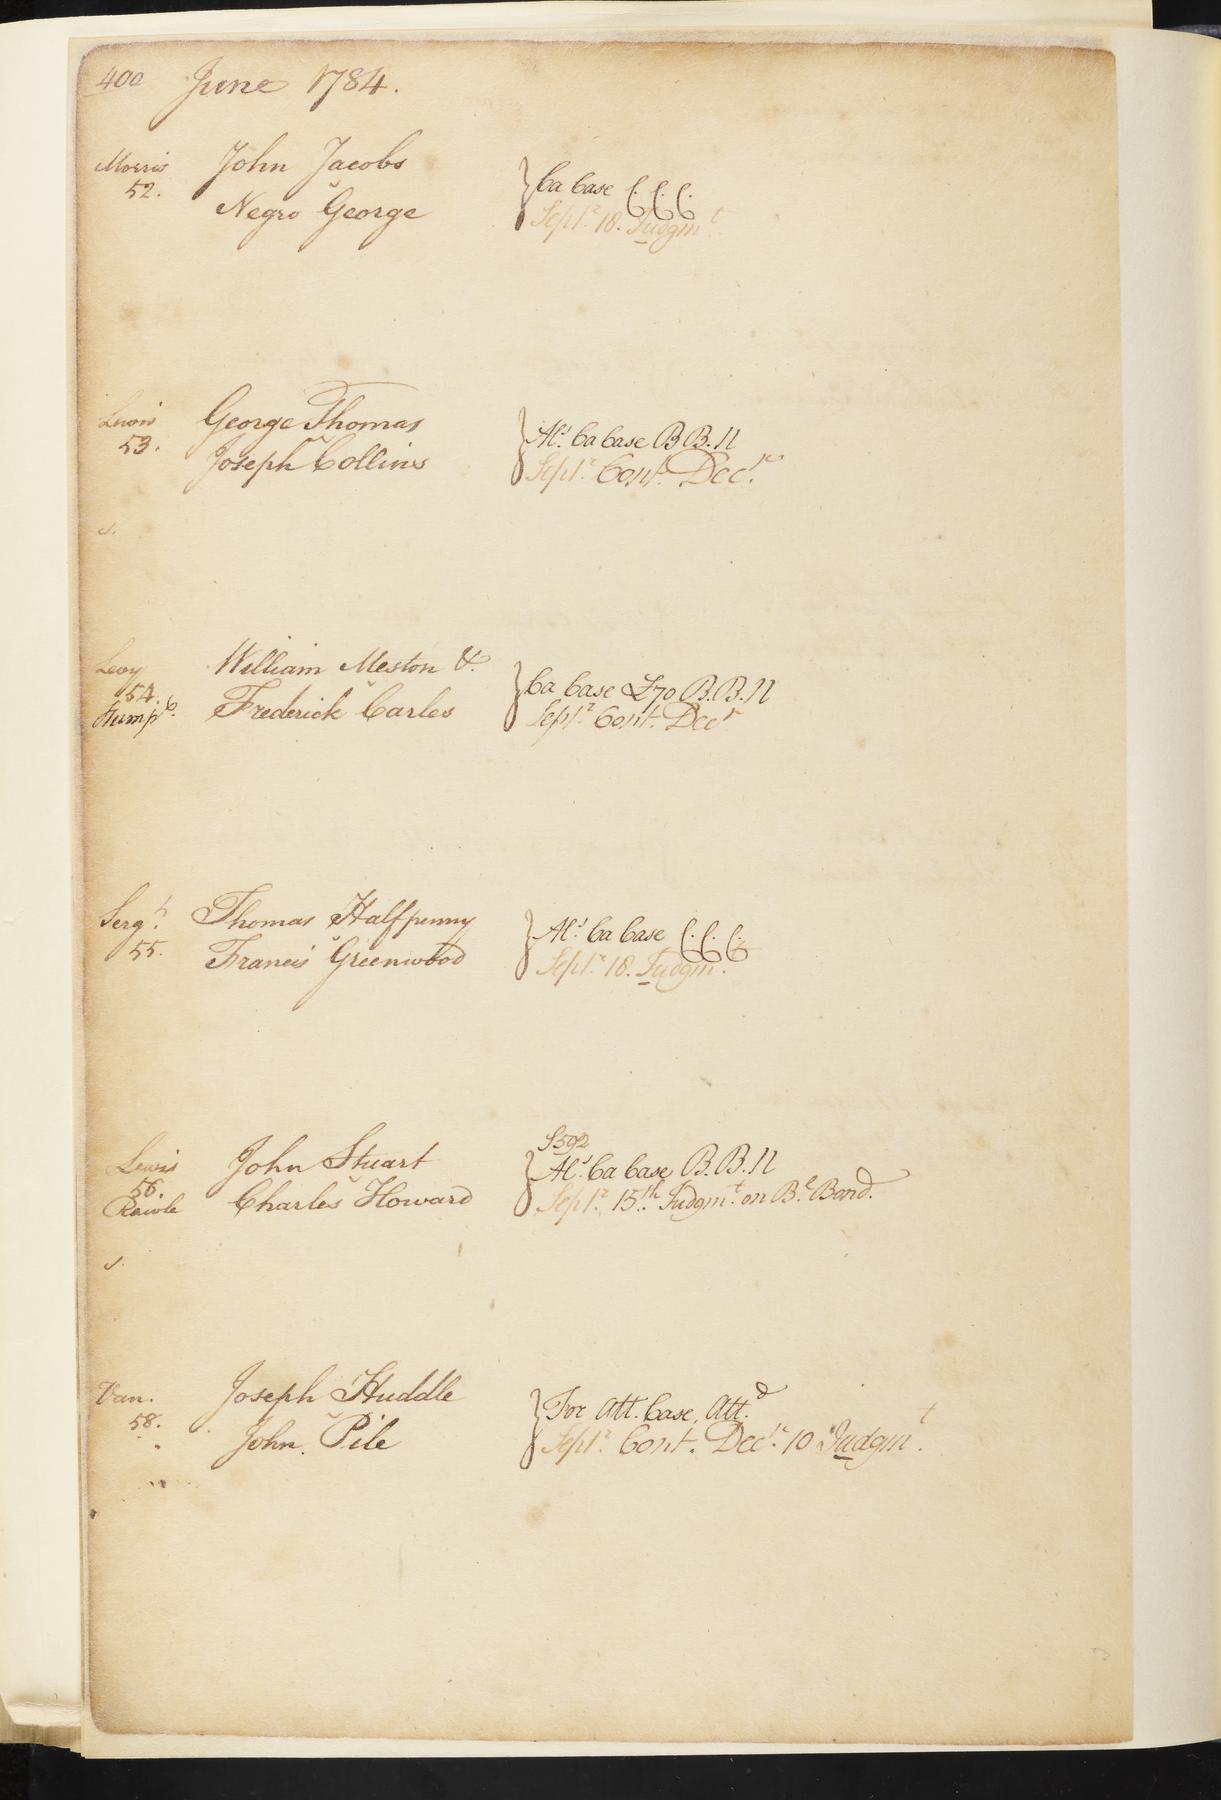 400 June 1784.
Morris John Jacobs
52. v Ca Case C.C.C.
Negro George Sept.r 18. Judgm.t
Lewis George Thomas
53. v Al.s Ca Case B B. N
Joseph Collins Sept.r Cont. Dec.r
s.
Levy William Meston &
54. v Ca Case £70 B.B. N
Hump.s Frederick Carles Sept.r Cont. Dec.r
Serg.t Thomas Halfpenny
55. v Al.s Ca Case C.C.C.
Francis Greenwood Sept.r 18. Judgm.t
£592
Lewis John Stuart Al.s Ca Case B.B. N
56. v
Rawle Charles Howard Sept.r 15.th Judgm.t on B.l Bond.
s.
Van. Joseph Huddle For Att. Case. Att.d
58. v
John Pile Sept.r Cont. Dec.r 10 Judgm.t